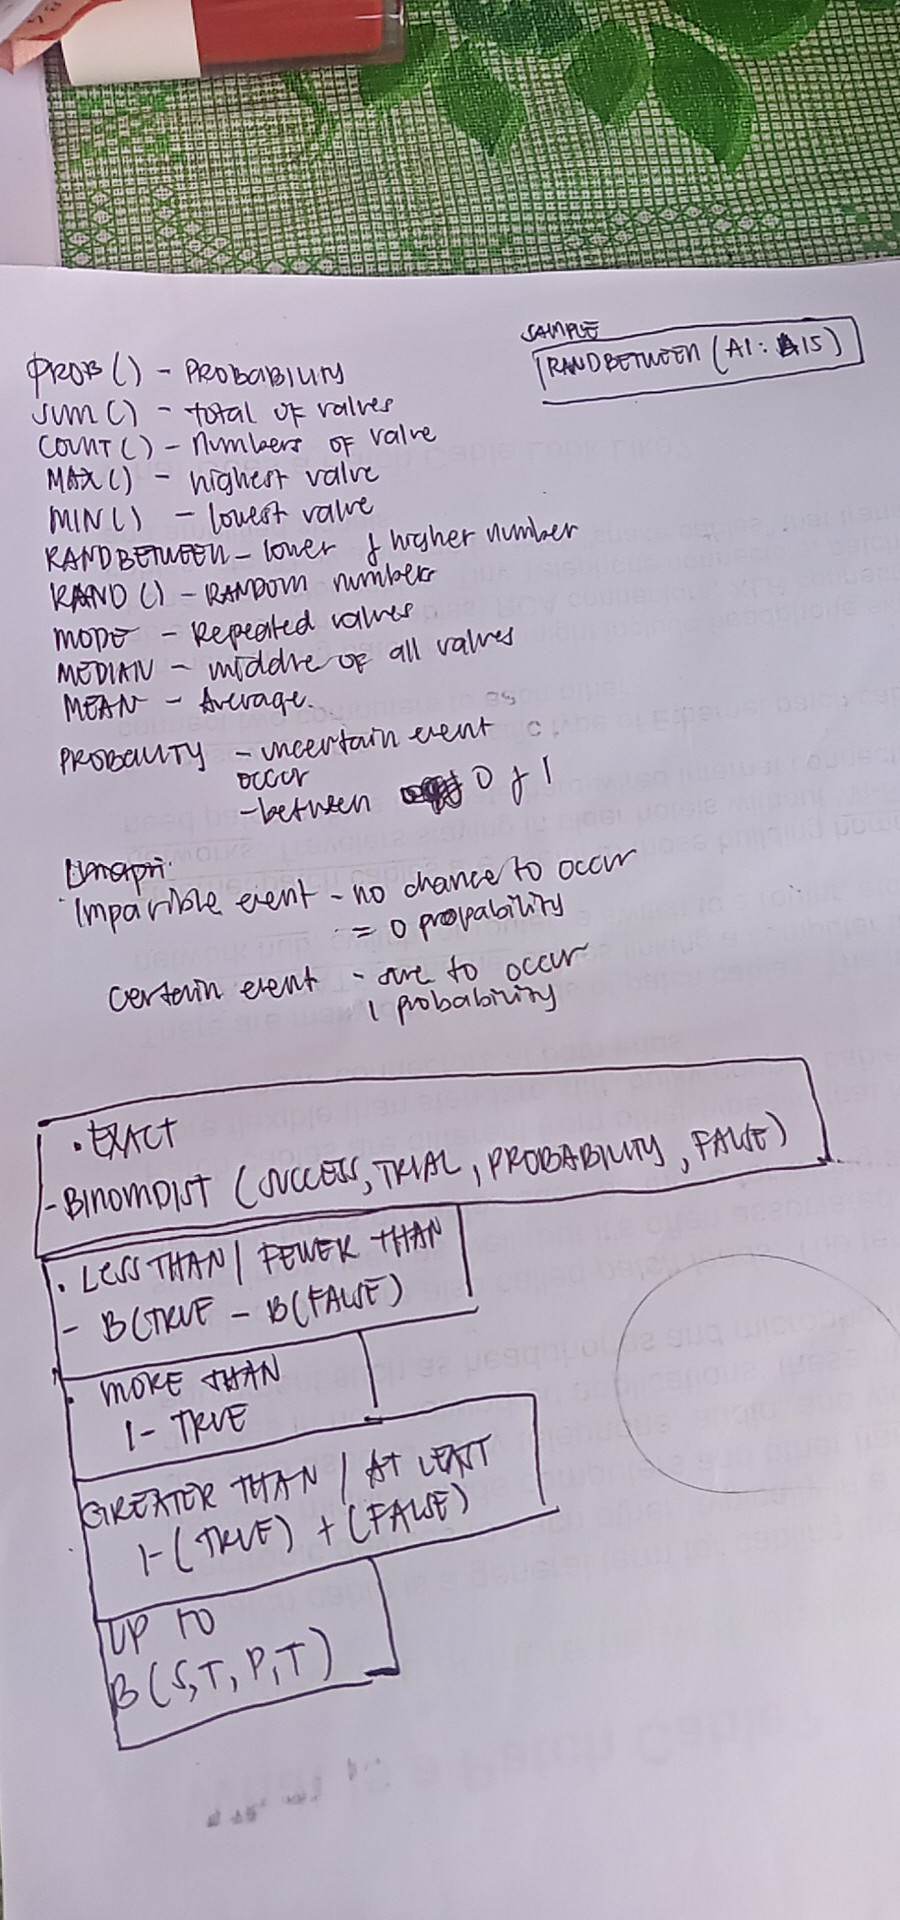 SAMPLE
RANDBETWEEN (A1: A15)
PROB () - PROBABILITY
SUM () - total OF values
COUNT () - Numbers OF value
MAX () - highest value
MIN () - lowest value
RANDBETWEEN - lower & higher number
RAND () - RANDOM numbers
MODE - Repeated values
MEDIAN - middle OF all values
MEAN - Average.
PROBALITY - uncertain event
occur
- between 0 & 1
Impossible event - no chance to occur
= 0 probability
certain event - sure to occur
1 probability
• EXACT
- BINOMDIST (SUCCESS, TRIAL, PROBABILITY, FALSE)
• LESS THAN | FEWER THAN
- B(TRUE - B(FALSE)
• MORE THAN
1- TRUE
GREATER THAN / AT LEAST
1-(TRUE) + (FALSE)
UP TO
B(S,T,P,T)